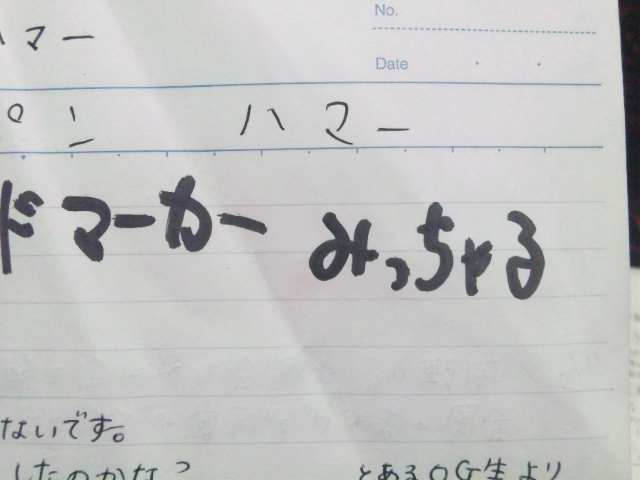 No.
マー
Date
ペン ハマー
ドマーカー みっちゃる
ないです。
したのかな? とあるOG生より